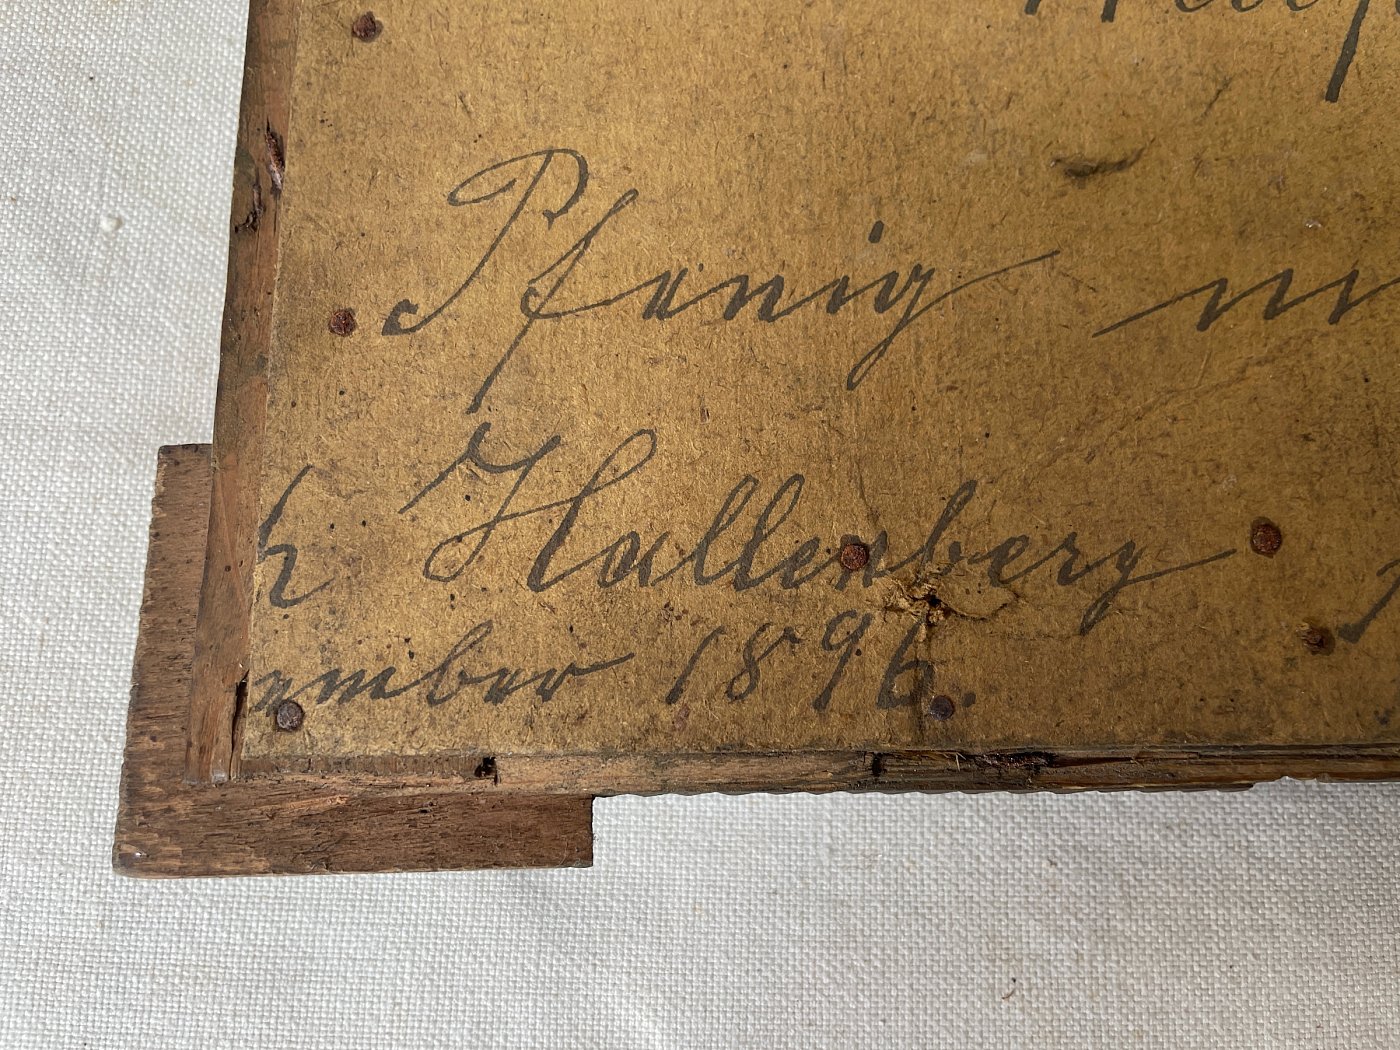 Pfenig
h Hallenberg
ember 1896.